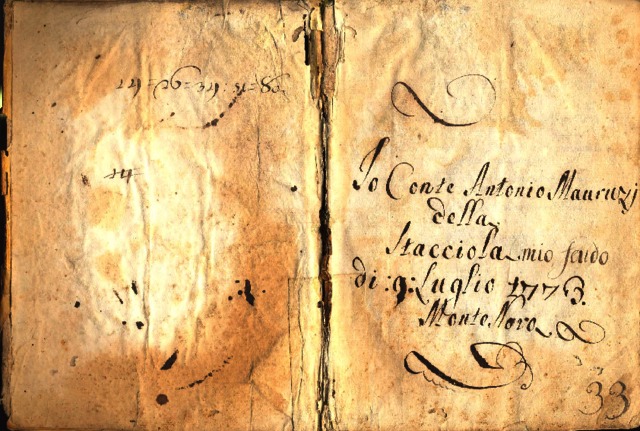 14
Io Conte Antonio Mauruzj
della
Stacciola mio feudo
di :9: Luglio 1773.
Monte Novo
33